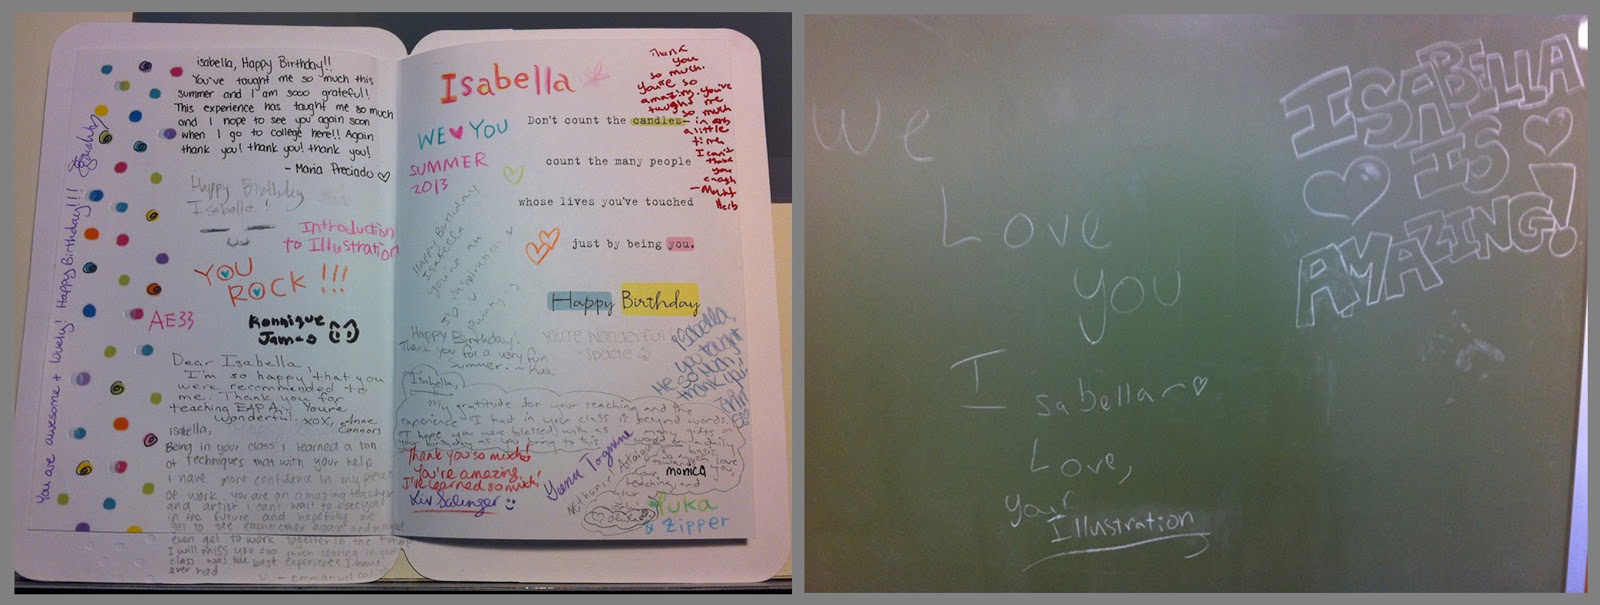 isabella, Happy Birthday!!
You've taught me so much this
summer and I am sooo grateful!
This experience has taught me so much
and I hope to see you again soon
when I go to college here!! Again
thank you! thank you! thank you!
- Maria Preciado
Happy Birthday
Isabella!
Introduction
to Illustration
YOU
ROCK!!!
AE33
Konnique
James
Dear Isabella,
I'm so happy that you
were recommended to
me. Thank you for
teaching EAPA. You're
wonderful! xox, Anne
Connors
isabella,
Being in your class I learned a ton
of techniques that with your help
I have more confidence in my pieces
of work. you are an amazing teacher
and artist I cant wait to see you
in the future and hopefully we
get to see each other again and maybe
even get to work together in the future
I will miss you soo much
class was the best experience I have
ever had
- emmanuel
You are awesome + lovely! Happy Birthday!!!
Isabella
WE YOU
SUMMER
2013
Thank
you
so much.
You're so
amazing. You've
taught me
so much
in
a little
time
I can't
thank
you
enough
Don't count the candles—
count the many people
whose lives you've touched
just by being you.
Happy Birthday
Happy Birthday
Isabella
you're an
inspiration
Happy Birthday!
Thank you for a very fun
summer. - Kua
You're wonderful
Isabella,
you taught
so much
thank you!
Isabella,
my gratitude for your teaching and the
experience I had in your class is beyond words.
I hope you were blessed with as many gifts on
your birthday as you bring to this world on a daily
basis
love you
monica
Thank you so much!
You're amazing
I've learned so much!
Liv Salinger
Yuka
& Zipper
We
Love
you
Isabella
Love,
your
Illustration
ISABELLA
IS
AMAZING!